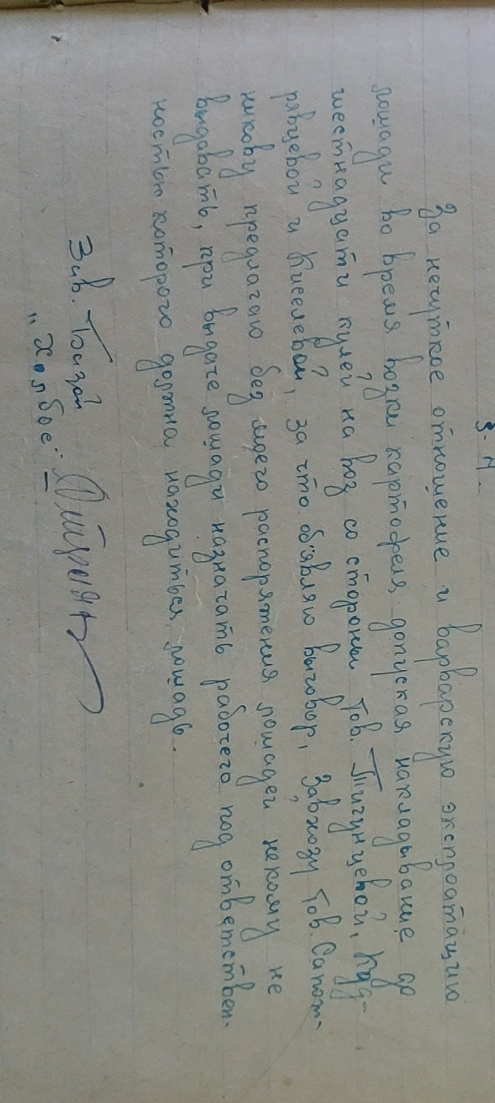 §. 4.
За нечуткое отношение и варварскую эксплоатацию
лошади во время возки картофеля допуская накладывание до
шестнадцати кулей на воз со стороны тов. Тигунцевой, Куд-
рявцевой и Киселевой, за что об'являю выговор, Завхозу тов. Сапож-
никову предлагаю без моего распоряжения лошадей некому не
выдавать, при выдаче лошади назначать рабочего под ответствен-
ностью которого должна находиться лошадь.
Зав. Базой